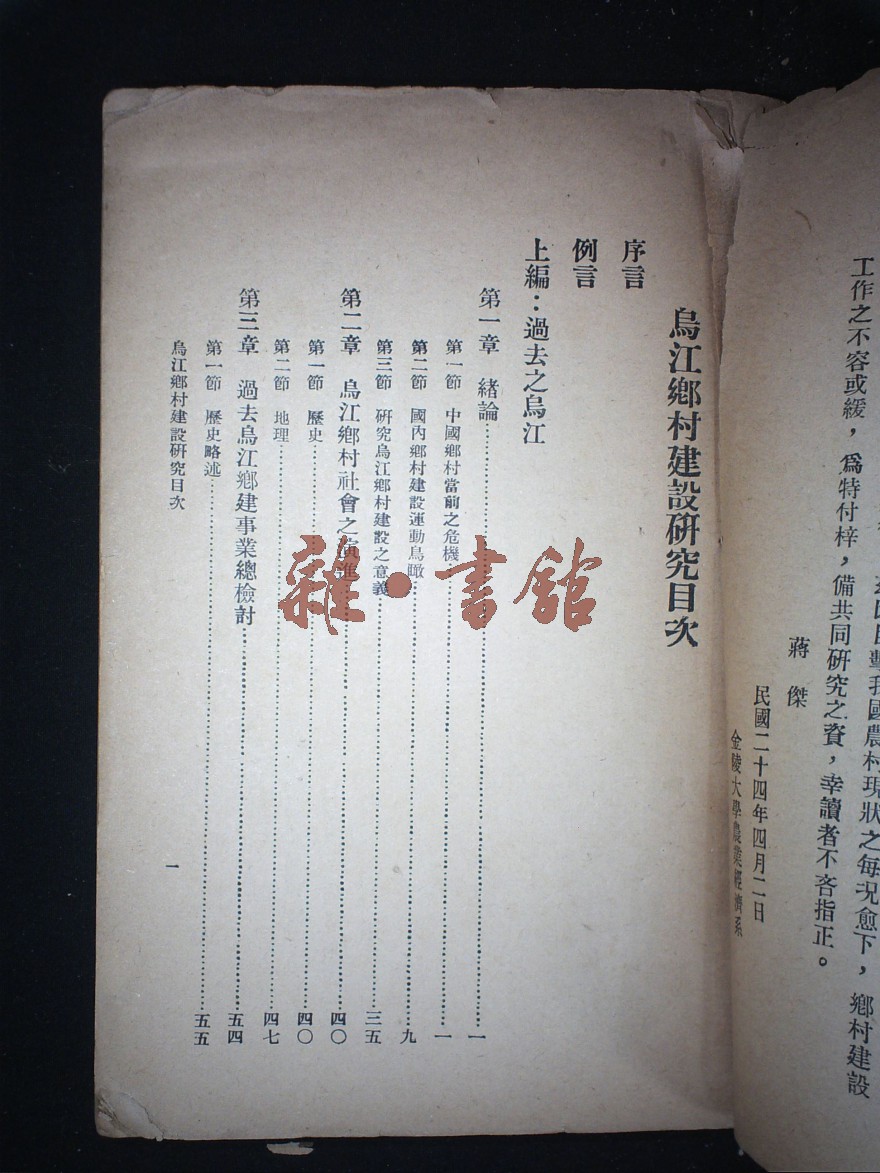 爲因目擊我國農村現狀之每況愈下，鄉村建設
工作之不容或緩，爲特付梓，備共同研究之資，幸讀者不吝指正。
蔣傑
民國二十四年四月二日
金陵大學農業經濟系
烏江鄉村建設研究目次
序言
例言
上編：過去之烏江
第一章 緒論……一
第一節 中國鄉村當前之危機……一
第二節 國內鄉村建設運動鳥瞰……九
第三節 研究烏江鄉村建設之意義……三五
第二章 烏江鄉村社會之演進……四〇
第一節 歷史……四〇
第二節 地理……四七
第三章 過去烏江鄉建事業總檢討……五四
第一節 歷史略述……五五
烏江鄉村建設研究目次
一
雜·書館